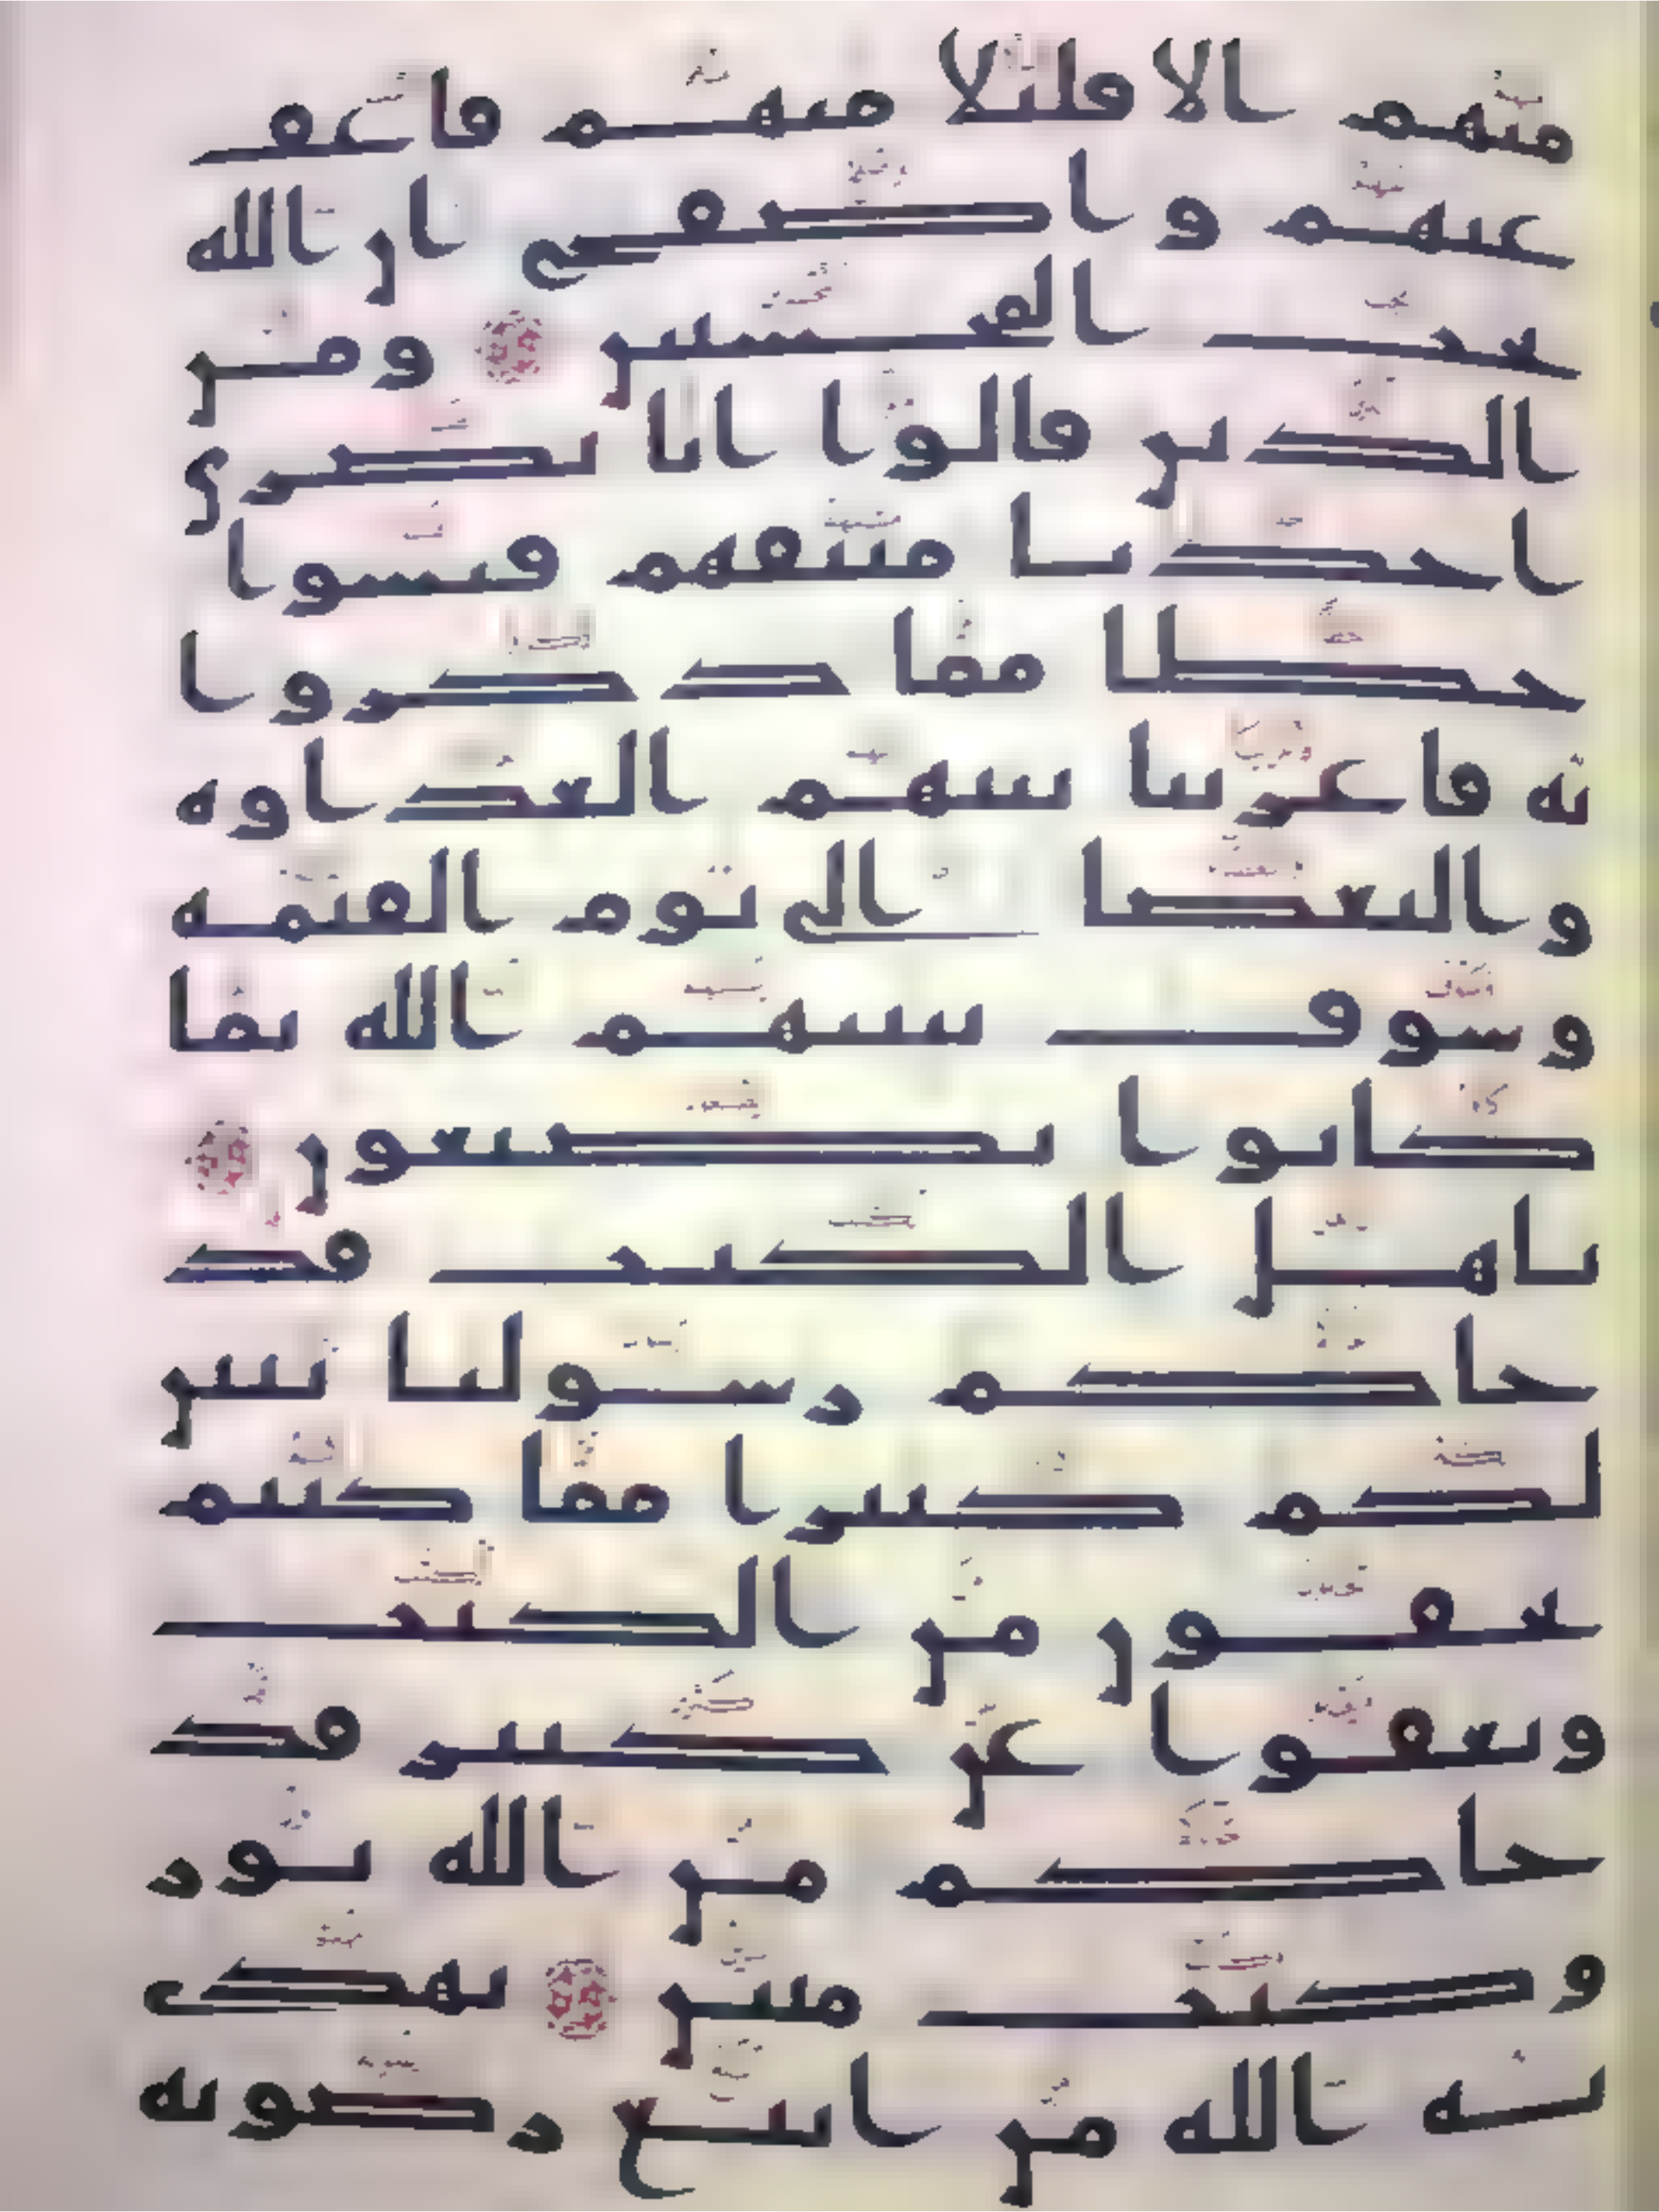 منهم الا قليلا منهم فاعف
عنهم واصفح ان الله
يحب المحسنين ومن
الذين قالوا انا نصرى
اخذنا ميثقهم فنسوا
حظا مما ذكروا
به فاغرينا بينهم العداوة
والبغضا الى يوم القيمة
وسوف ينبيهم الله بما
كانوا يصنعون
ياهل الكتب قد
جاكم رسولنا يبين
لكم كثيرا مما كنتم
تخفون من الكتب
ويعفوا عن كثير قد
جاكم من الله نور
وكتب مبين يهدى
به الله من اتبع رضونه